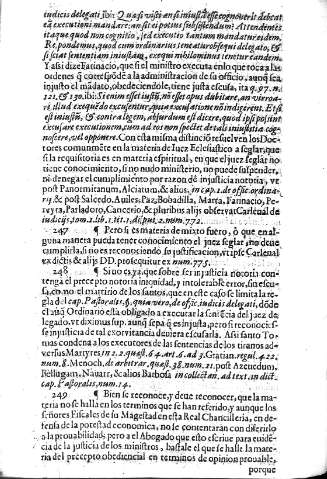 iudicis delegati, ibi: Quæsivisti an si iniustã esse cognoverit debeat
eã executioni mandare: an sit ei potius subsistendum? Attendentes
itaque quod non cognitio, sed executio tantum mandatur eidem.
Respondemus, quod cum ordinarius teneatur obsequi delegato, &
si sciat sententiam iniustãm, exequi nihilominus tenetur eandem.
Y assi dize Gratiano, que si el ministro executa en lo que toca a las
ordenes q̃ corresponde a la administracion de su officio, aunq̃ sea
injusto el mãdato, obedeciendole, tiene justa escusa, ita q. 97. n.
121. & 130. ibi: Si enim esset iustũ, nõ esset opus dubitare, an vierroa-
ri illud exequẽdo excusentur, quia excusatione nõ indigerent. Et si
est iniustũ, & contra legem, absurdum est dicere, quod ipsi possint
excusare executionem, cum ad eos non spectet de tali iniustitia cog-
noscere, vel opponere. Con esta misma distinciõ resuelven los Doc-
tores comunmẽte en la materia de Iuez Eclesiastico a seglar, que
si la requisitoria es en materia espiritual, en que el juez seglar no
tiene conocimiento, si no nudo ministerio, no puede suspender,
ni denegar el cumplimiento por razon de injusticia notoria, ve
post Panormitanum, Alciatum, & alios, in cap. 1. de offic. ordina-
rij, & post Salcedo, Aules, Paz, Bobadilla, Marta, Farinacio, Pe-
reyra, Parladoro, Cancerio, & pluribus alijs observat Carleual de
iudicijs, tom. 1. lib. 1. tit. 1. disput. 2. num. 772.
247 ¶ Pero si es materia de mixto fuero, ò que en algu-
guna manera pueda tener conocimiento el juez seglar, no deve
cumplirla, si no es reconociendo su justificacion, vt ipse Carleual
ex dictis & alijs DD. prosequitur ex num. 775.
248 ¶ Sino es ya que sobre ser injusticia notoria con-
tenga el precepto notoria iniquidad, intolerable error, sin escu-
sa, como el martirio de los santos, que en este caso se limita la re-
gla del cap. Pastoralis, §. quia vero, de offic. iudicis delegati, dõde
el aunq̃ Ordinario esta obligado a executar la sentẽcia del juez de-
legado, vt diximus sup. aunq̃ sepa q̃ es injusta, pero si reconoce
se injusticia de tal exorbitancia deviera escusarla. Assi santo To-
mas condena a los executores de las sentencias de los tiranos ad-
versus Martyres in 2. 2. quæst. 64. art. 6. ad 3. Gratian. regul. 422.
num. 8. Menoch. de arbitrar. quæst. 38. num. 21. post Azeuedum,
Bellugam, Nauarr, & alios Barbosa in collectan. ad text. in dict.
cap. Pastoralis, num. 14.
249 ¶ Bien se reconoce, y deve reconocer, que la mate-
ria no se halla en los terminos que se han referido, y aunque los
señores Fiscales de su Magestad en esta Real Chancilleria, en de-
fensa de la potestad economica, no se contentaràn con diferirlo
a la prouabilidad, pero al Abogado que esto escriue para euidẽ-
cia de la justicia de los ministros, bastale el que se halle la mate-
ria del precepto obedecido en terminos de opinion prouable,
porque